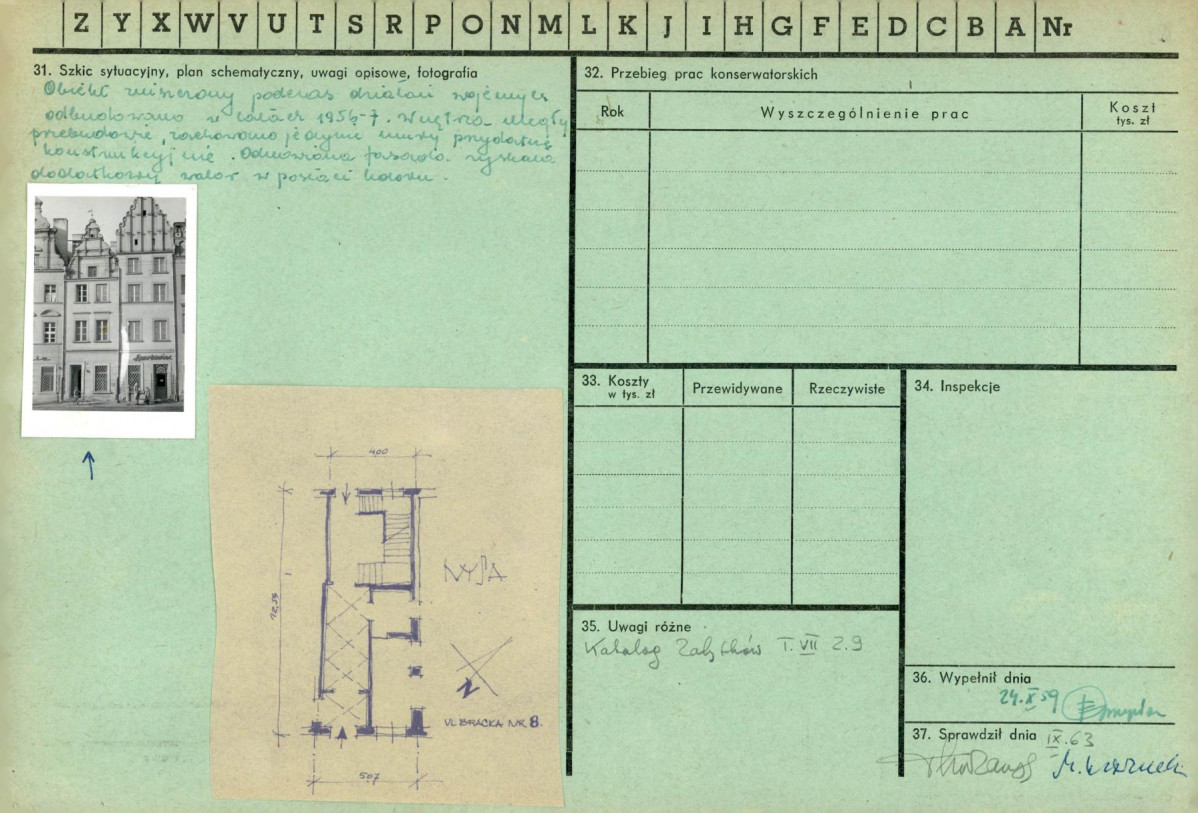 Z Y X W V U T S R P O N M L K J I H G F E D C B A Nr
31. Szkic sytuacyjny, plan schematyczny, uwagi opisowe, fotografia
Obiekt zniszczony podczas działań wojennych
odbudowano w latach 1956-7. Wnętrza uległy
przebudowie, zachowano jedynie mury przydatne
konstrukcyjnie. Odnowiona fasada zyskała
dodatkowy walor w postaci koloru.
400
12,59
NYSA
N
UL. BRACKA NR 8.
507
32. Przebieg prac konserwatorskich
Rok
Wyszczególnienie prac
Koszt
tys. zł
33. Koszty
w tys. zł
Przewidywane
Rzeczywiste
34. Inspekcje
35. Uwagi różne
Katalog Zabytków T. VII z. 9
36. Wypełnił dnia
24.X 59
37. Sprawdził dnia IX.63